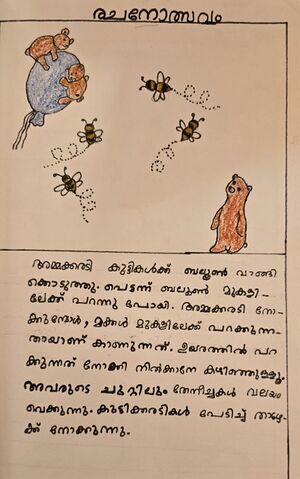 രചനോത്സവം
അമ്മക്കരടി കുട്ടികൾക്ക് ബലൂൺ വാങ്ങി
ക്കൊടുത്തു. പെട്ടന്ന് ബലൂൺ മുകളി-
ലേക്ക് പറന്നു പോയി. അമ്മക്കരടി നോ-
ക്കുമ്പോൾ, മക്കൾ മുകളിലേക്ക് പറക്കുന്ന-
തായാണ് കാണുന്നത്. ഉയരത്തിൽ പറ
ക്കുന്നത് നോക്കി നിൽക്കാനേ കഴിഞ്ഞുള്ളൂ.
അവരുടെ ചുറ്റിലും തേനീച്ചകൾ വലയം
വെക്കുന്നു. കുട്ടിക്കരടികൾ പേടിച്ച് താഴേ-
ക്ക് നോക്കുന്നു.